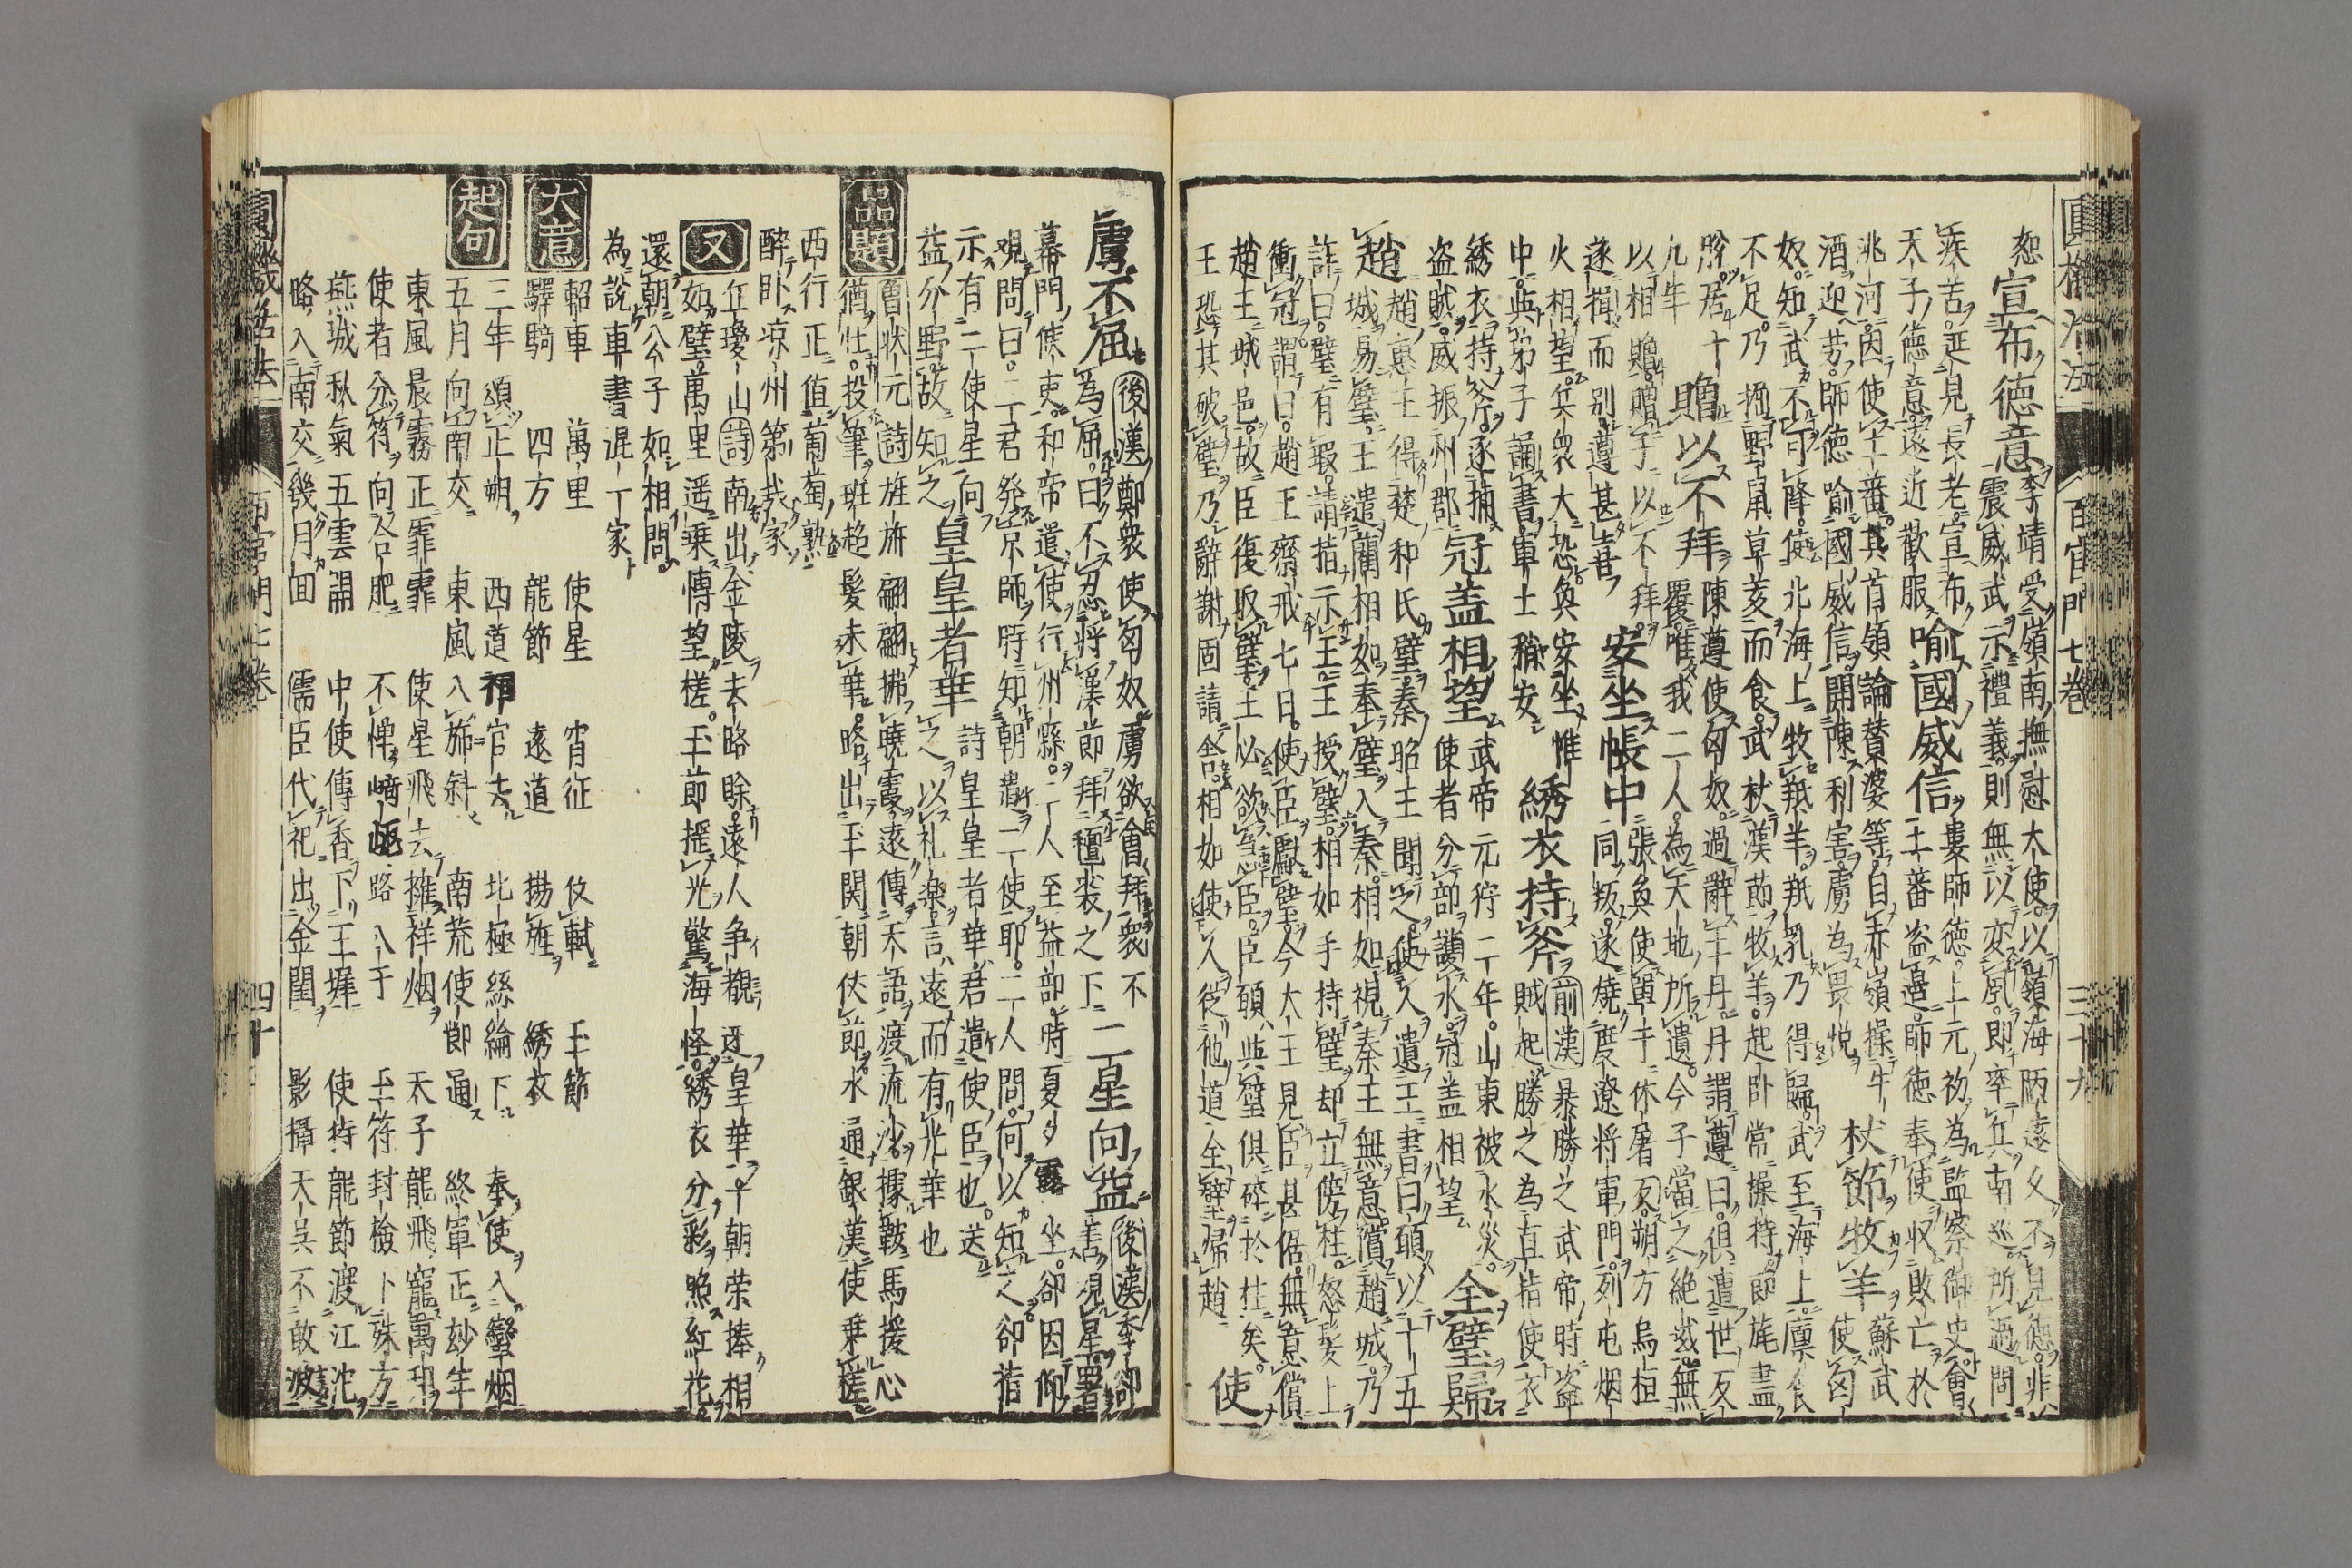 圓機活法 百官門七卷 三十九
恕 宣布德意 李靖受嶺南撫慰大使以嶺海陋遠久不見德非
震威武示禮義則無以変風即率兵南巡所過問
疾苦延見長老宣布
天子德意遠近歡服 喻國威信 婁師德上元初為監察御史會
王蕃盗邉師徳奉使収敗亡於
洮河因使土蕃其首領論賛婆等自赤嶺操牛
酒迎労師德喻國威信開陳利害虜為畏悦 杖節牧羊 蘇武
使匈
奴知武不可降徙北海上牧羝羊羝乳乃得歸武至海上廩食
不足乃掘野鼠草菱而食武杖漢節牧羊起卧常操持節旄盡
脱居十 贈以不拜 陳遵使匈奴過辭王丹丹謂遵曰俱遭世反
九年 覆唯我二人為天地所遺今子當之絶域無
以相贈贈子以不拜 安坐帳中 張奐使單于休屠反朔方烏桓
遂揖而别遵甚喜 同叛遂燒度遼将軍門列屯烟
火相望兵衆大恐奐安坐惟 綉衣持斧 前漢暴勝之武帝時盗
中與弟子誦書軍士稍安 賊起勝之為直指使衣
綉衣持斧逐捕 冠盖相望 武帝元狩二年山東被水災 全璧歸
盗賊威振州郡 使者分部護水冠盖相望
趙 趙惠王得楚和氏璧秦昭王聞之使人遺王書曰願以十五
城易璧王遣藺相如奉璧入秦相如視秦王無意償趙城乃
詐曰璧有瑕請指示王王授璧相如手持璧却立傍柱怒髪上
衝冠謂曰趙王齋戒七日使臣獻璧今大王見臣甚倨無意償
趙王城邑故臣復取璧王必欲急臣臣頭與璧俱碎於柱矣 使
王恐其破璧乃辭謝固請舍相如使人従他道全璧帰趙
虜不屈 後漢鄭衆使匈奴虜欲會拜衆不
為屈曰不忍将漢節拜氊裘之下 二星向益 後漢李郃
善視星署
幕門候吏和帝遣使行州縣二人至益部時夏夕露坐郃因仰
視問曰二君発京師時知朝遣二使耶二人問何以知之郃指
示有二使星向 皇皇者華 詩皇皇者華君遣使臣也送
益分野故知之 之以礼楽言遠而有光華也
品題 曾状元詩旌旆翩翩拂曉霞遠傳天語渡流沙據鞍馬援心
猶壮投筆班超髪未華略出玉関朝伏節水通銀漢使乗槎
西行正值葡萄熟
醉卧凉州第幾家
又 丘瓊山詩南出金陵去路賖遠人争覩迓皇華千朝荣捧相
如璧萬里遥乗博望槎玉節揺光驚海怪綉衣分彩照紅花
還朝公子如相問
為說車書混一家
大意 軺車 萬里 使星 宵征 伏軾 玉節
驛騎 四方 龍節 遠道 揚旌 綉衣
起句 三年頌正朔 西道禆官去 北極絲綸下 奉使入蠻烟
五月向南交 東風入旆斜 南荒使節通 終軍正玅年
東風晨霧正霏霏 使星飛去擁祥烟 天子龍飛寵萬邦
使者分符向合肥 不憚崎嶇路八千 玉符封檢卜殊方
燕城秋氣五雲開 中使傳香下玉墀 使持龍節渡江沱
略入南交幾月回 儒臣代祀出金閨 影攝天呉不敢波
圓機活法 百官門七卷 四十